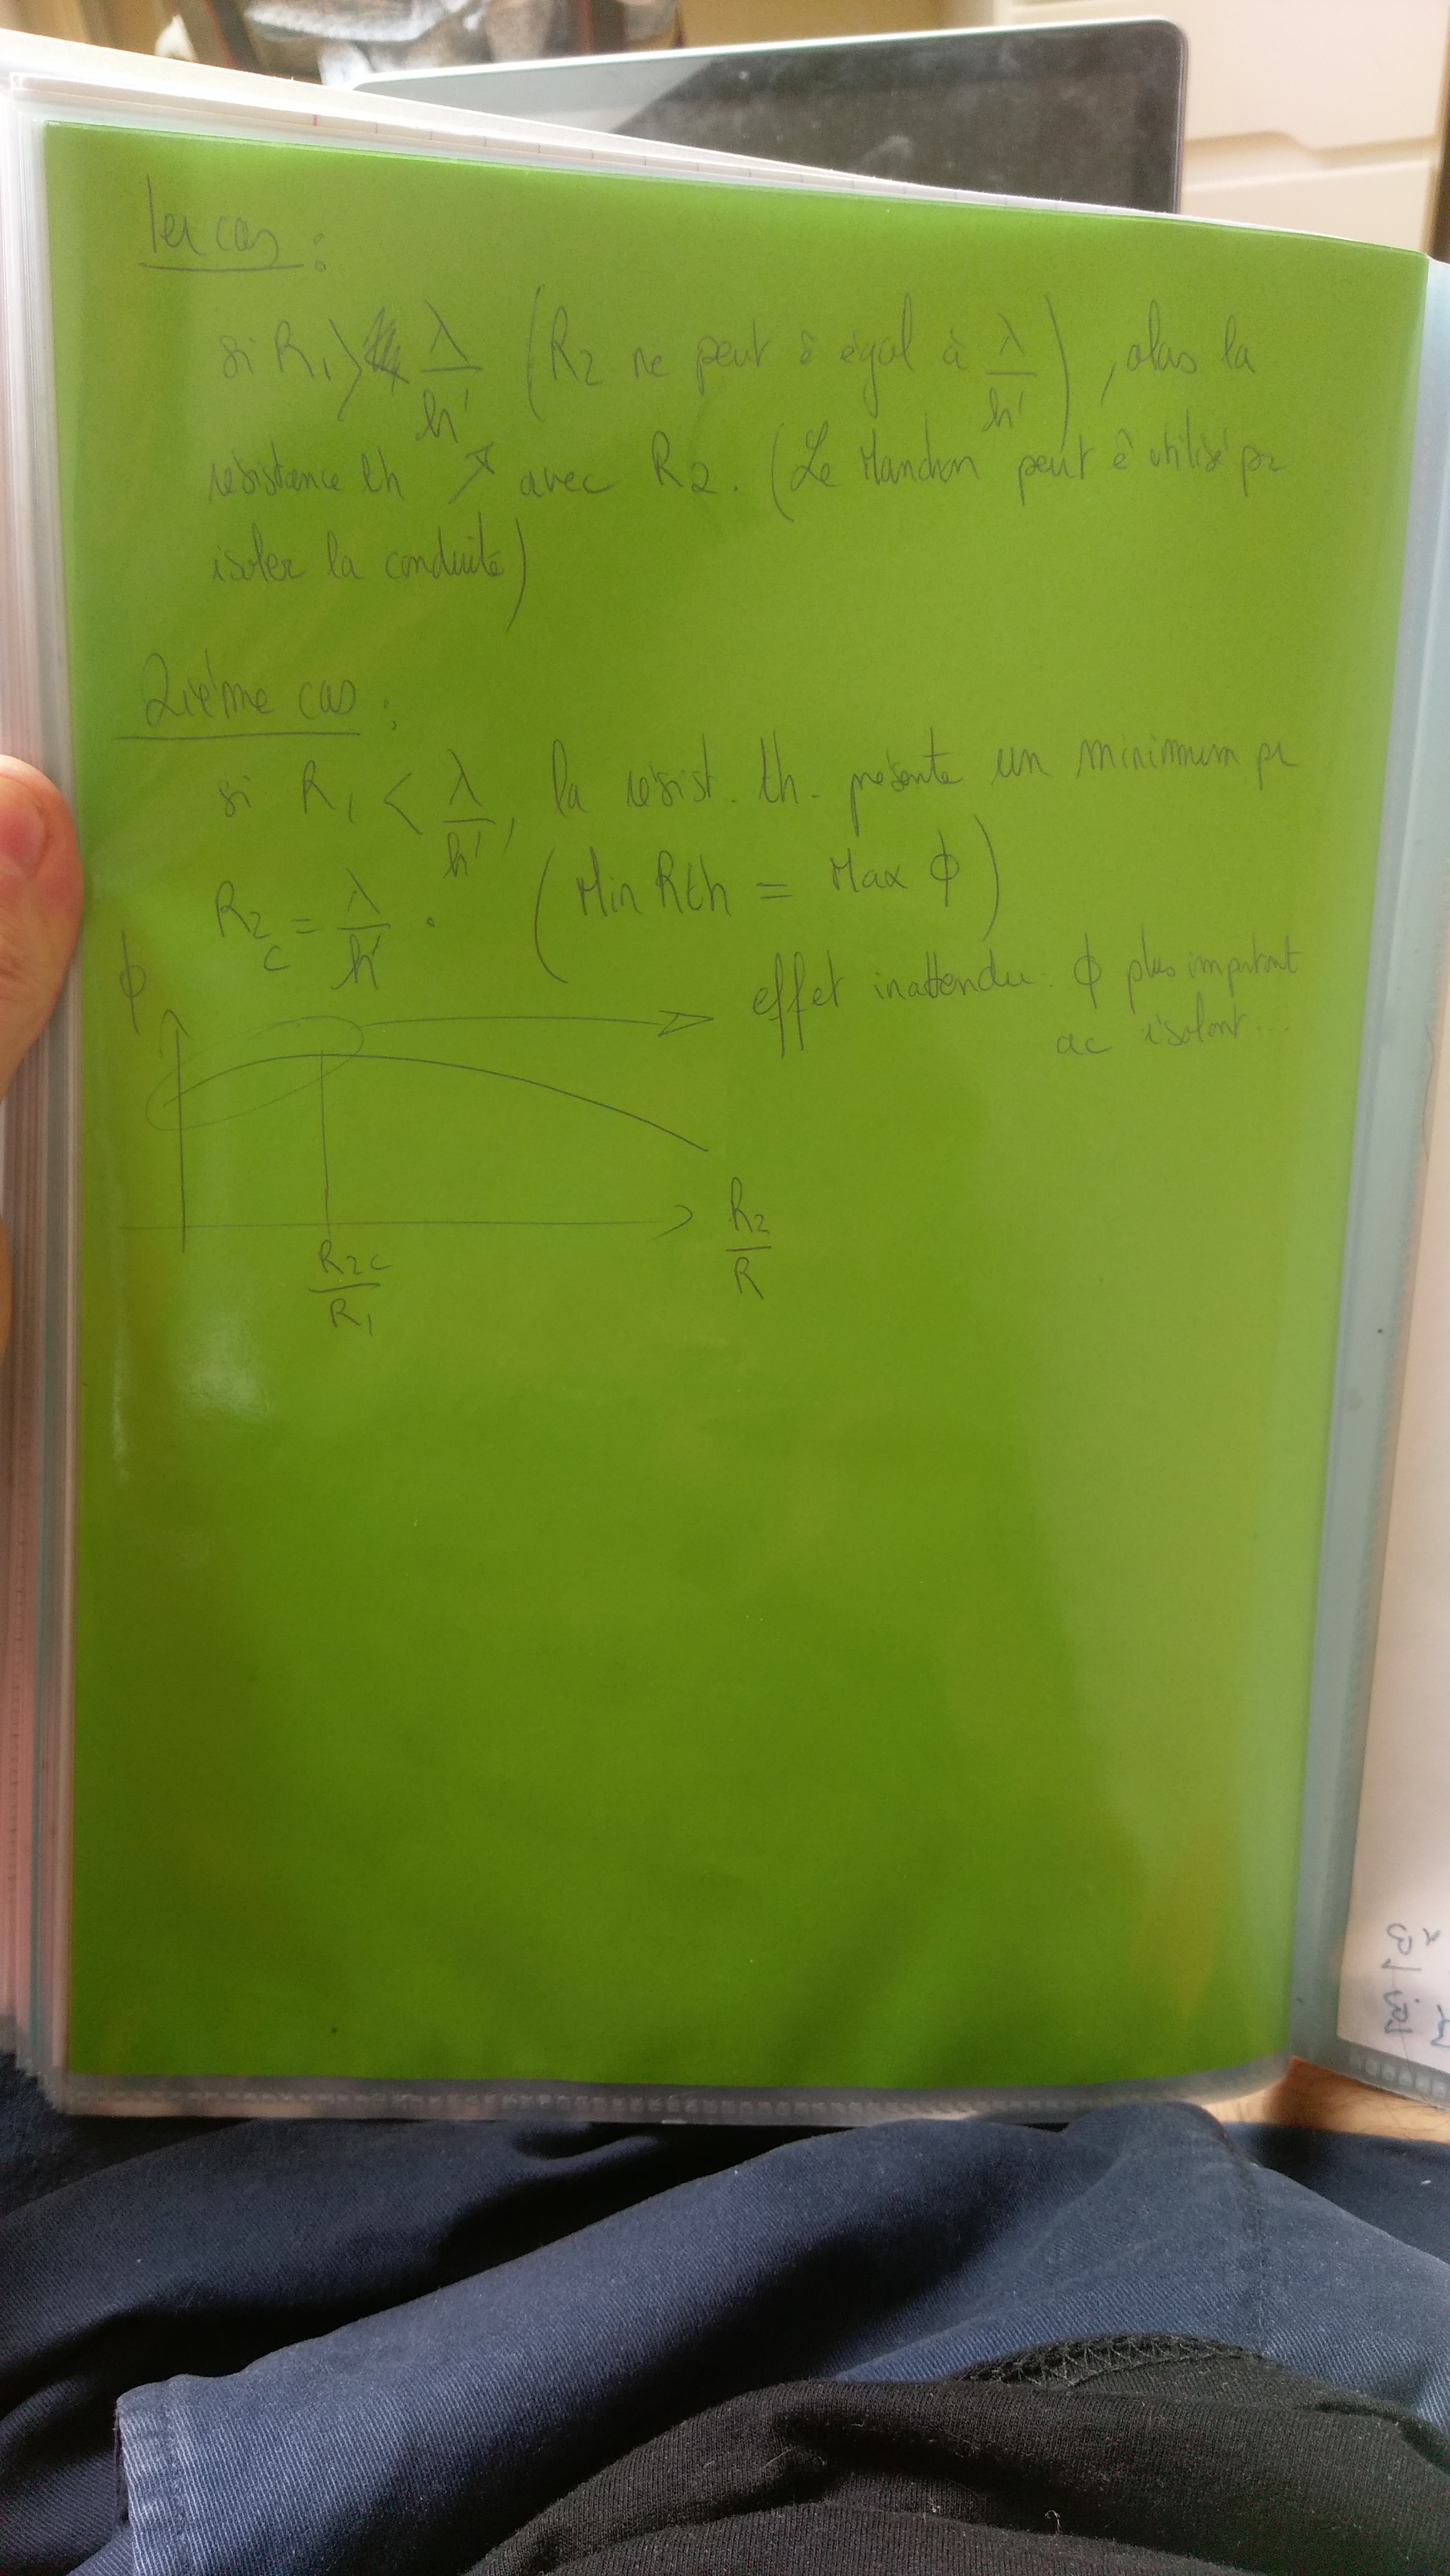 1er cas :
si R1 > λ/h' (R2 ne peut ê égal à λ/h'), alors la
résistance th ↗ avec R2. (Le Manchon peut ê utilisé pr
isoler la conduite)
2ième cas :
si R1 < λ/h', la résist. th. présente un minimum pr
R2c = λ/h'. (Min Rth = Max ϕ)
effet inattendu. ϕ plus important
ac isolant...
ϕ
R2/R
R2c/R1